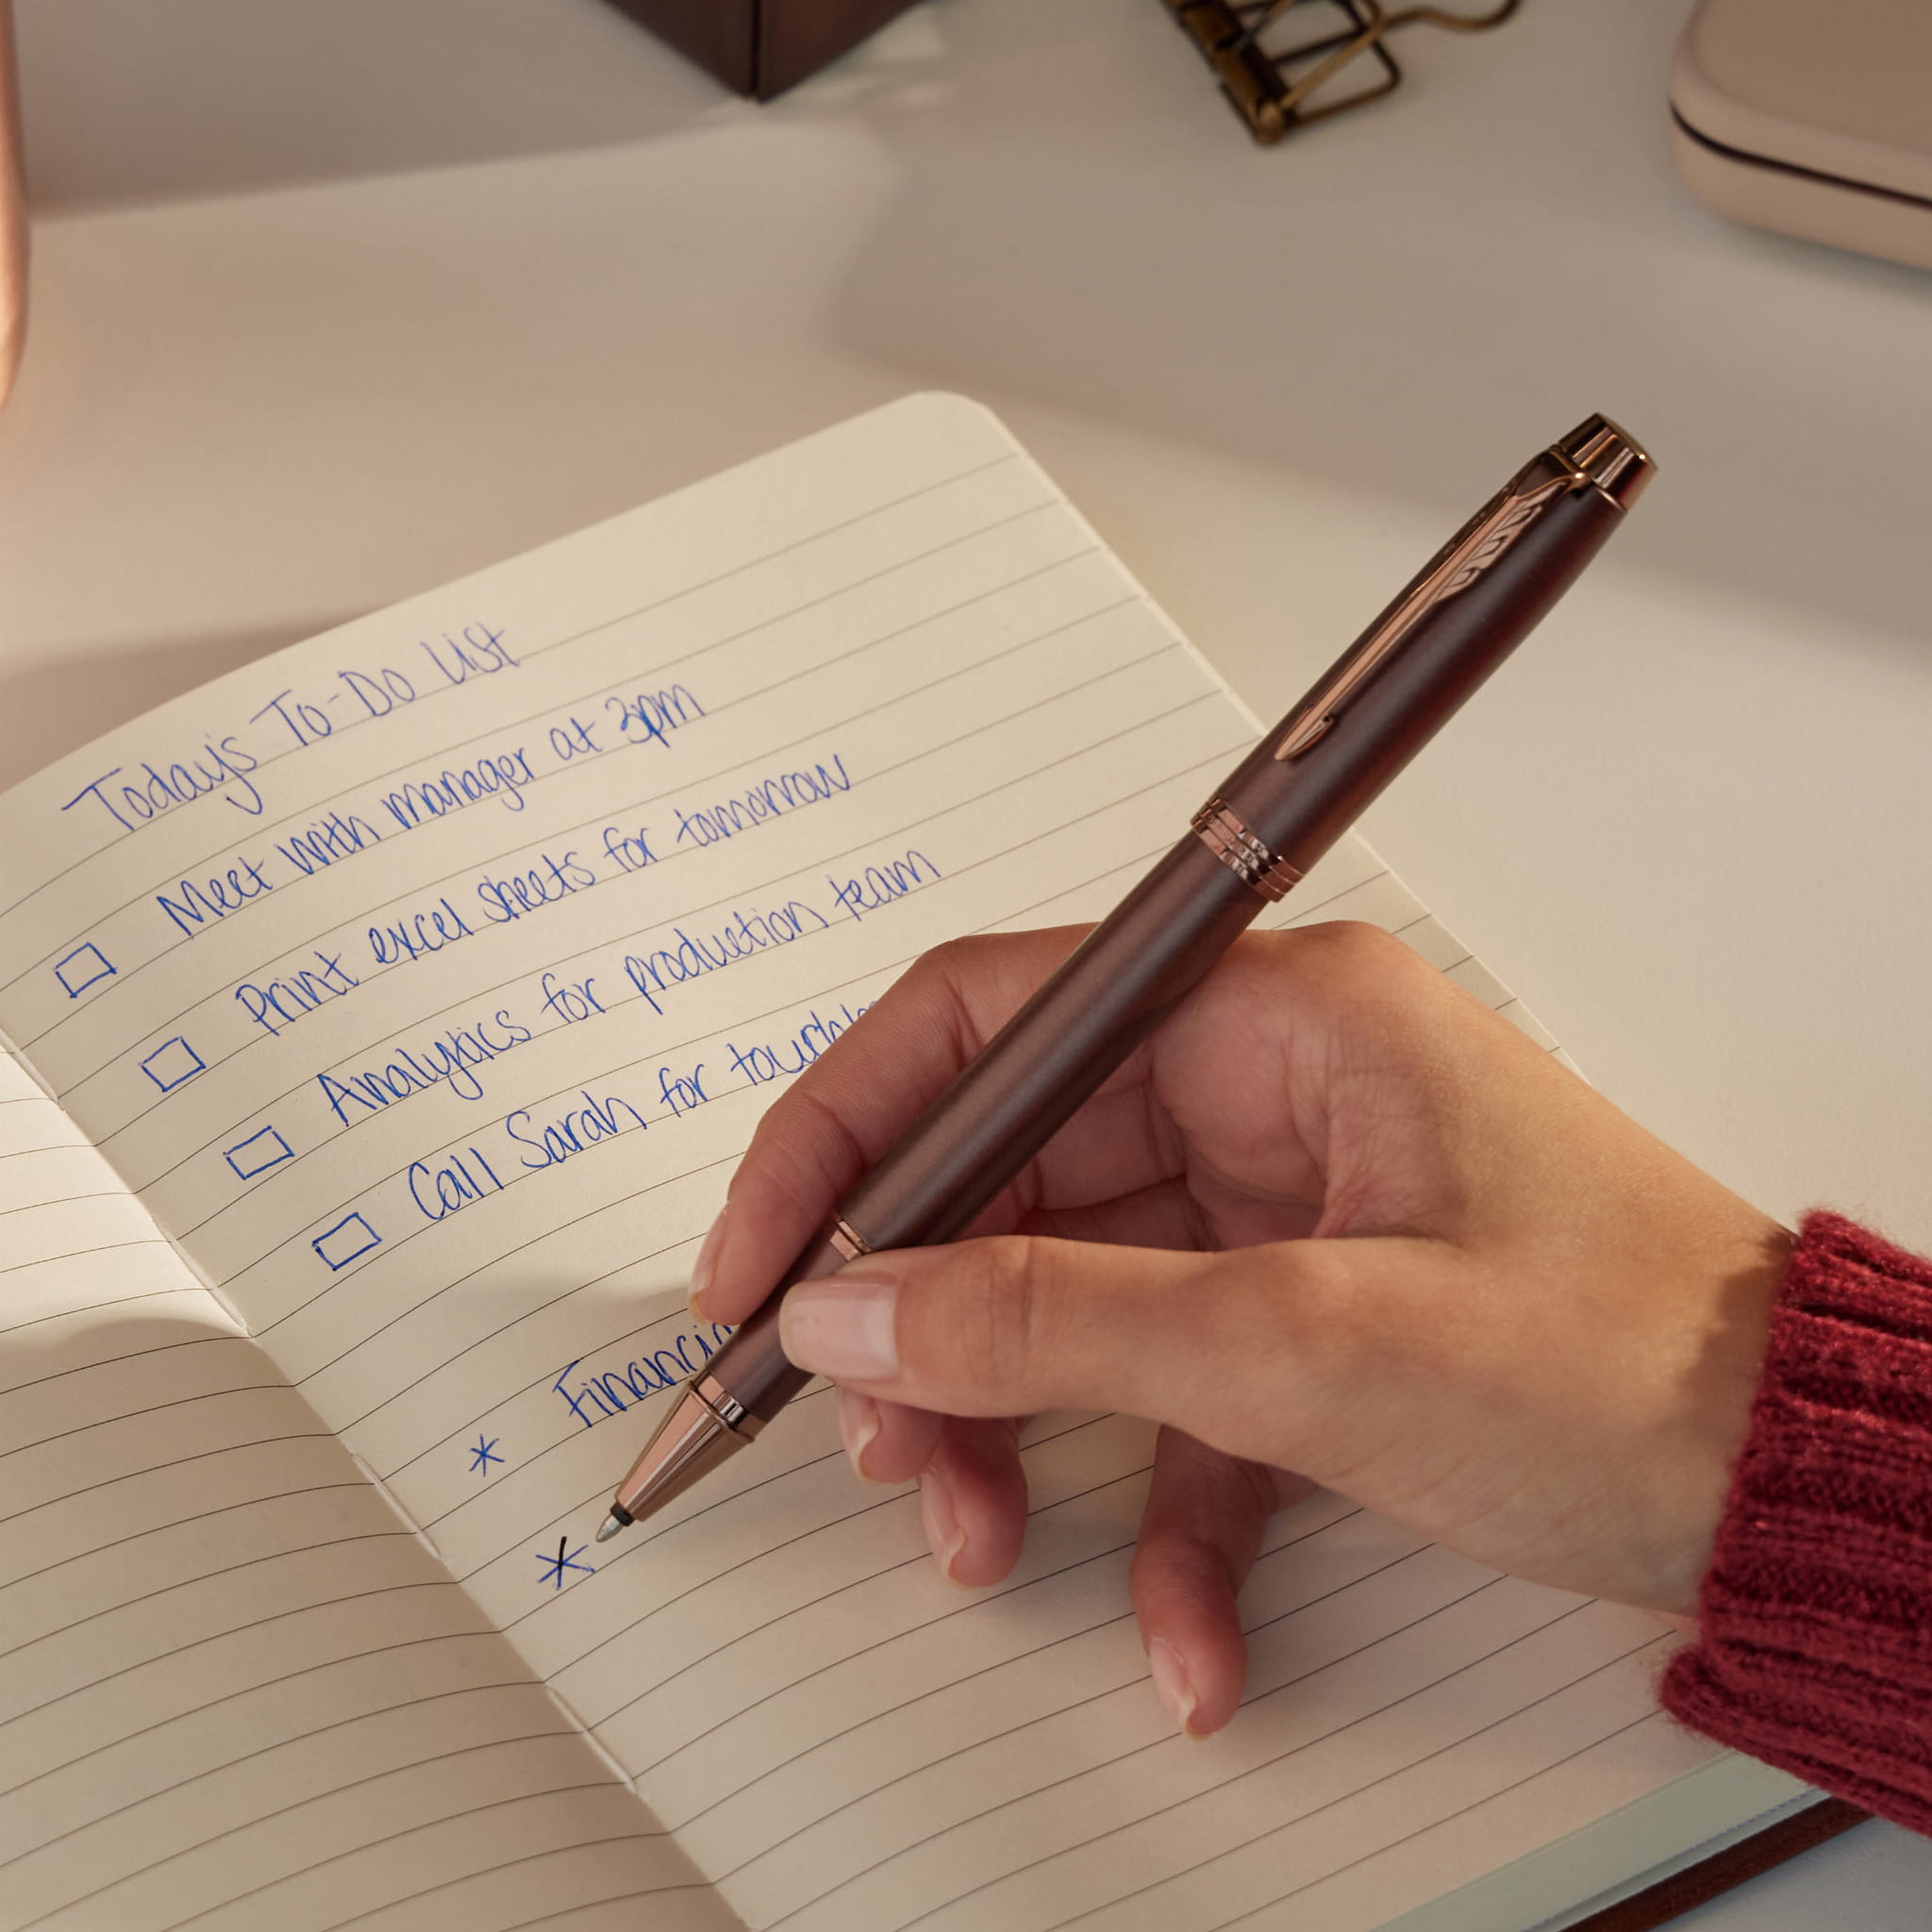 Today's To-Do List
Meet with manager at 3pm
Print excel sheets for tomorrow
Analytics for production team
Call Sarah for
*
*